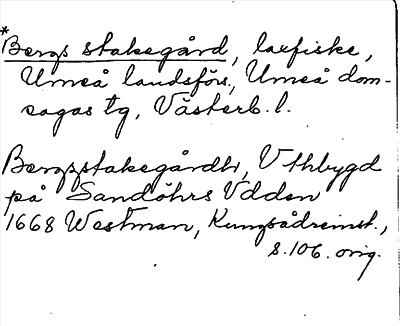 *Bergs stakegård, laxfiske,
Umeå landsförs, Umeå dom-
sagas tg, Västerb. l.
Bergzstakegårdh, Uthbygd
på Sandöhrs Udden
1668 Westman, Kungsådreinst.,
s. 106. orig.